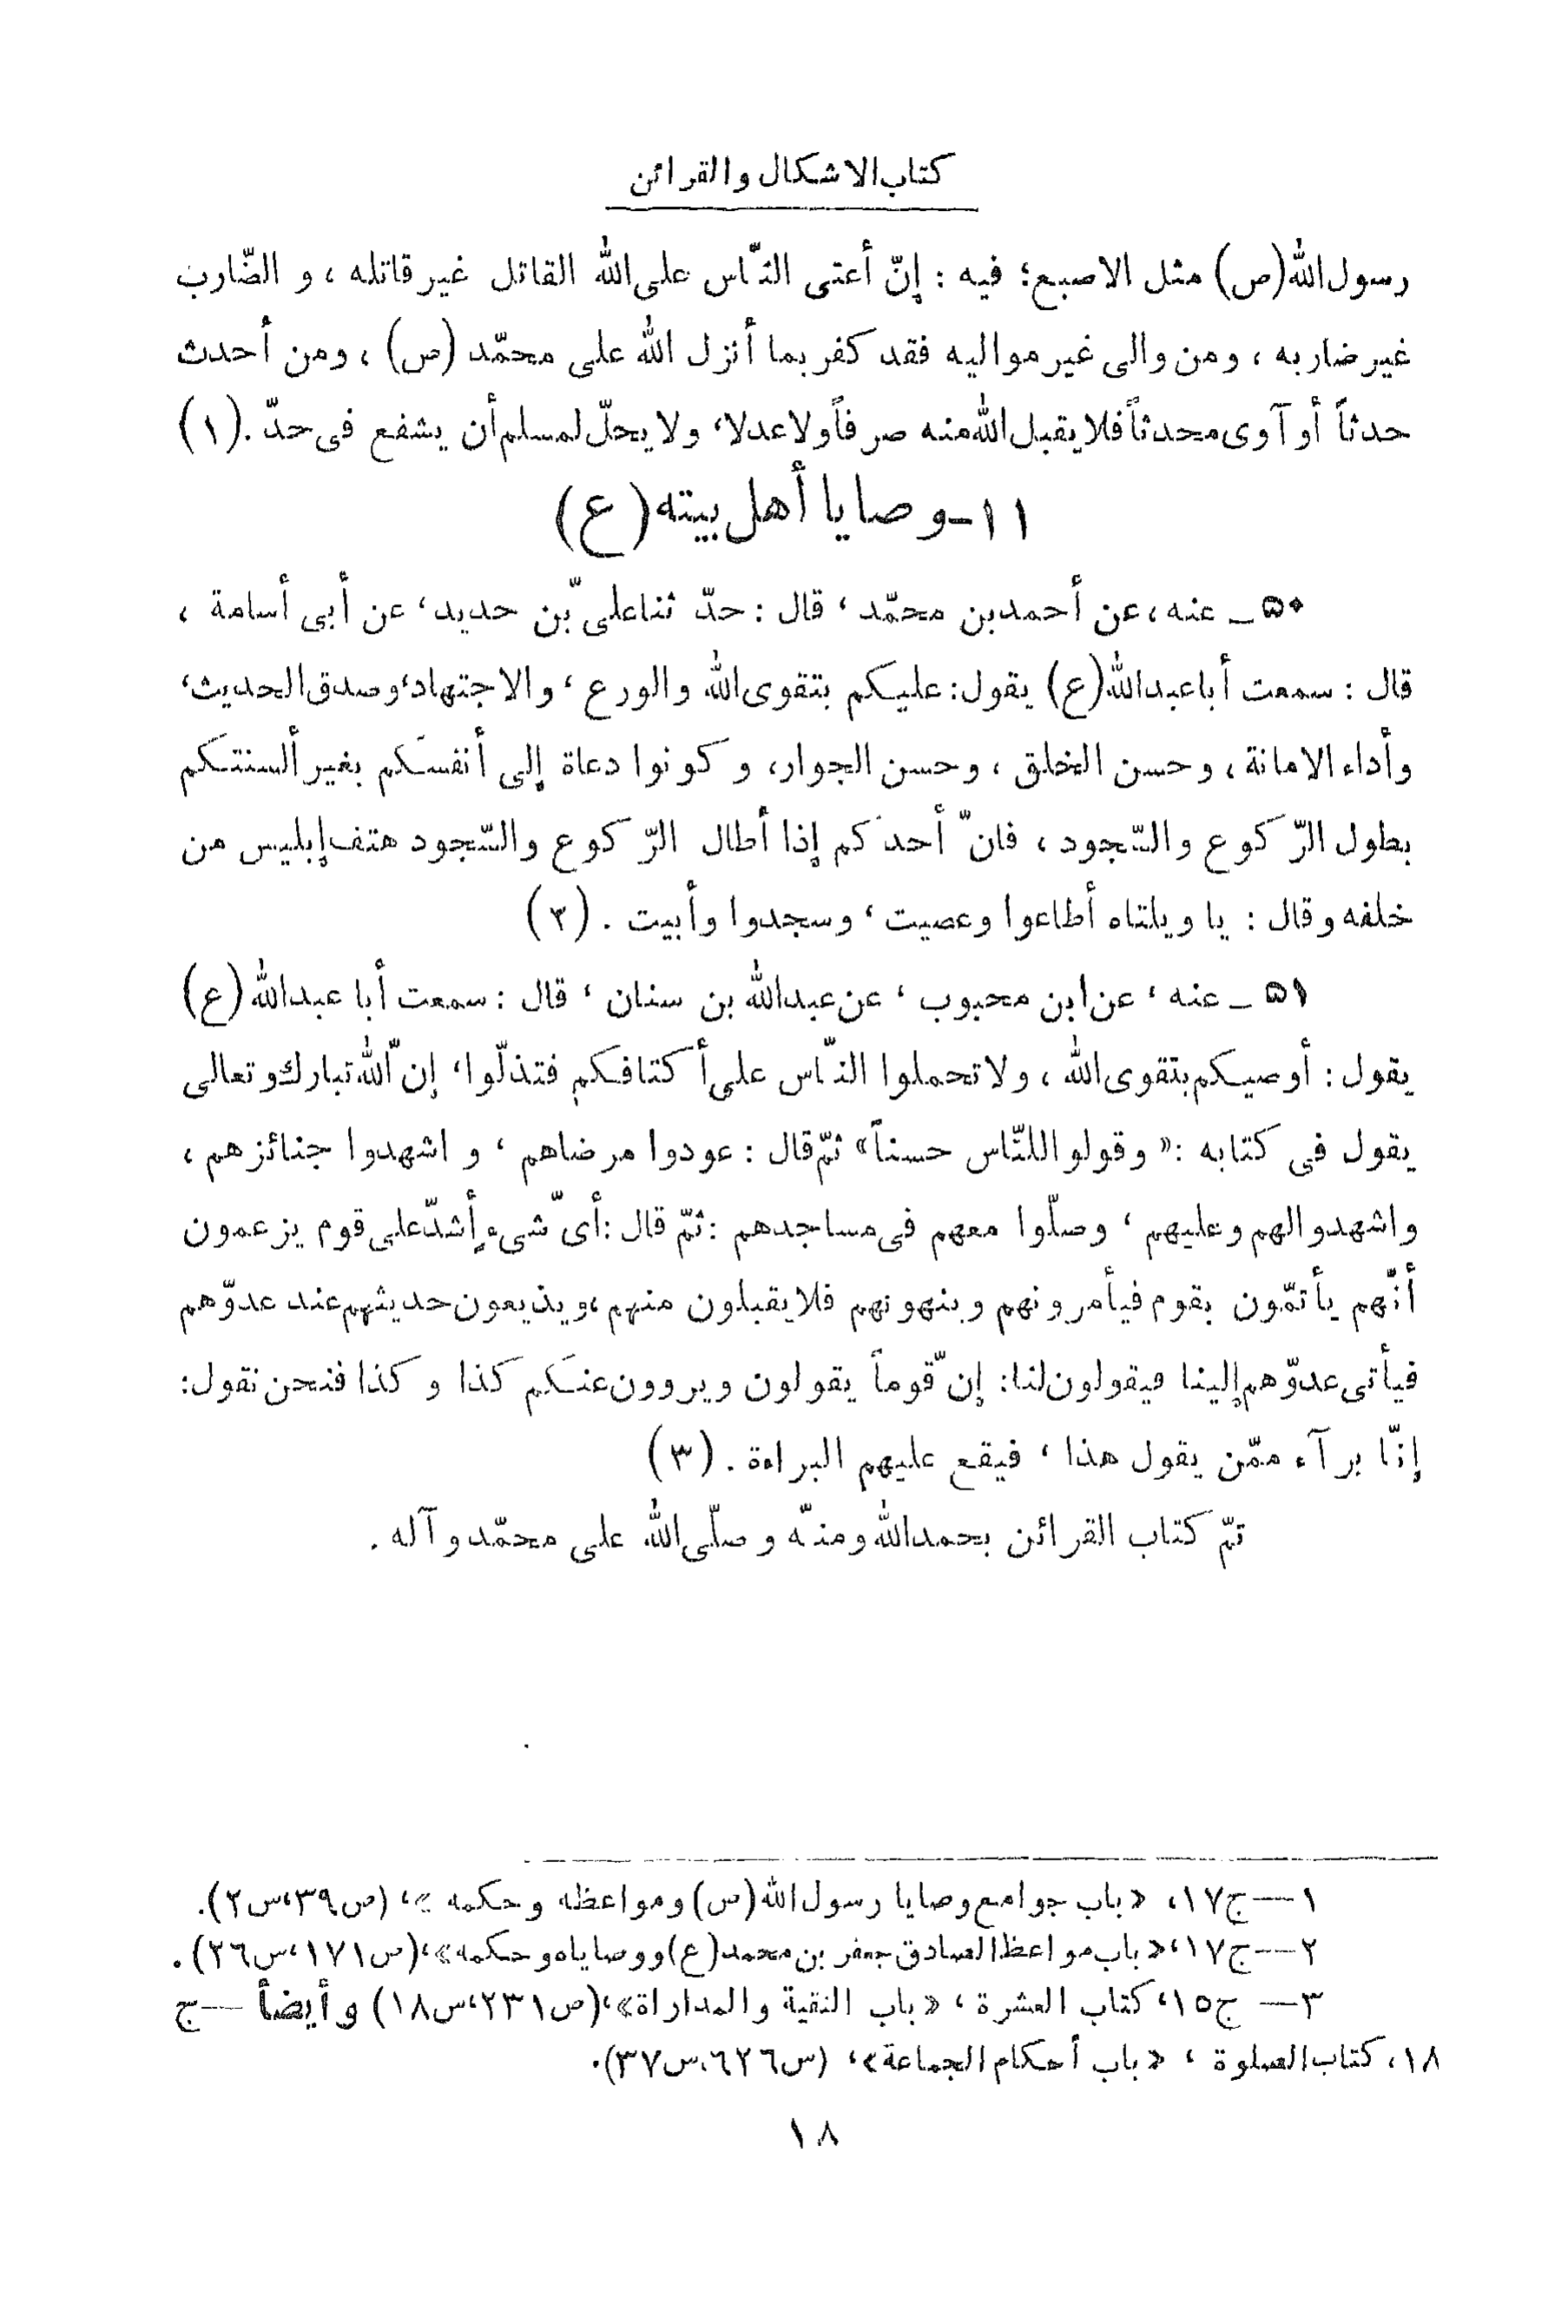 كتاب الاشكال والقرائن
رسول الله (ص) مثل الاصبع؛ فيه : إنّ أعتى النّاس على الله القاتل غير قاتله ، و الضّارب
غير ضاربه ، ومن والى غير مواليه فقد كفر بما أنزل الله على محمّد (ص) ، ومن أحدث
حدثاً أو آوى محدثاً فلا يقبل الله منه صرفاً ولا عدلا، ولا يحلّ لمسلم أن يشفع فى حدّ . (١)
١١-وصايا أهل بيته (ع)
٥٠ _ عنه ، عن أحمد بن محمّد ، قال : حدّ ثنا علىّ بن حديد، عن أبى أسامة ،
قال : سمعت أبا عبدالله (ع) يقول: عليكم بتقوى الله والورع ، والاجتهاد، وصدق الحديث،
وأداء الامانة ، وحسن الخلق ، وحسن الجوار، و كونوا دعاة إلى أنفسكم بغير ألسنتكم
بطول الرّ كوع والسّجود ، فانّ أحدَ كم إذا أطال الرّ كوع والسّجود هتف إبليس من
خلفه وقال : يا ويلتاه أطاعوا وعصيت ، وسجدوا وأبيت . (٢)
٥١ _ عنه ، عن ابن محبوب ، عن عبدالله بن سنان ، قال : سمعت أبا عبدالله (ع)
يقول : أوصيكم بتقوى الله ، ولا تحملوا النّاس على أكتافكم فتذلّوا، إنّ الله تبارك وتعالى
يقول فى كتابه :« وقولوا للنّاس حسناً» ثمّ قال : عودوا مرضاهم ، و اشهدوا جنائزهم ،
واشهدوا لهم وعليهم ، وصلّوا معهم فى مساجدهم :ثمّ قال :أىّ شىء أشدّ على قوم يزعمون
أنّهم يأتمّون بقوم فيأمرونهم وينهونهم فلا يقبلون منهم ،ويذيعون حديثهم عند عدوّهم
فيأتى عدوّهم إلينا فيقولون لنا: إنّ قوماً يقولون ويروون عنكم كذا و كذا فنحن نقول:
إنّا برآء ممّن يقول هذا ، فيقع عليهم البراءة . (٣)
تمّ كتاب القرائن بحمدالله ومنّه وصلّى الله على محمّد وآله .
١ — ج١٧، «باب جوامع وصايا رسول الله (ص) ومواعظه وحكمه »، (ص٣٩،س٢).
٢ — ج١٧، «باب مواعظ الصادق جعفر بن محمد (ع) ووصاياه وحكمه»،(ص١٧١،س٢٦).
٣ — ج١٥، كتاب العشرة ، «باب التقية والمداراة»،(ص٢٣١،س١٨) وأيضاً — ج
١٨، كتاب الصلوة ، «باب أحكام الجماعة»، (ص٦٢٦،س٣٧).
١٨